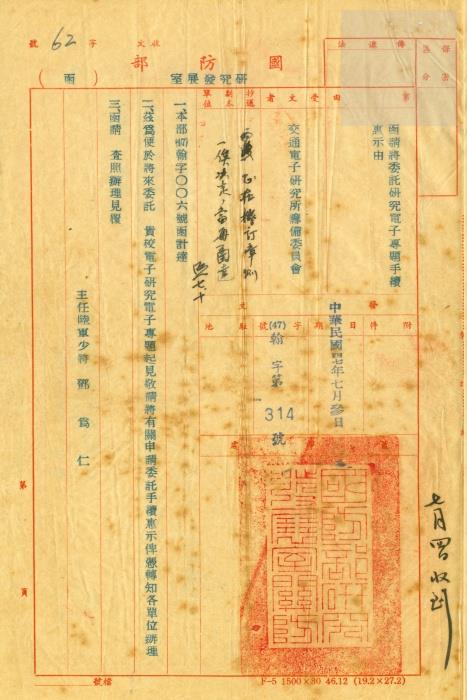 收文 字 62 號
國防部
研究發展室
(函)
保密區分
傳遞法
事由
函請將委託研究電子專題手續
惠示由
受文者
交通電子研究所籌備委員會
抄送副本單位
一、本部(47)翰字〇〇六號函計達
二、茲為便於將來委託 貴校電子研究電子專題起見敬請將有關申請委託手續惠示俾憑轉知各單位辦理
三、函請 查照辦理見覆
主任陸軍少將 鄧為仁
附件
發文
日期 中華民國四七年七月參日
字號 (47)翰字第314號
駐地
七月四日收到
第 頁
檔號
F-5 1500×30 46.12 (19.2×27.2)